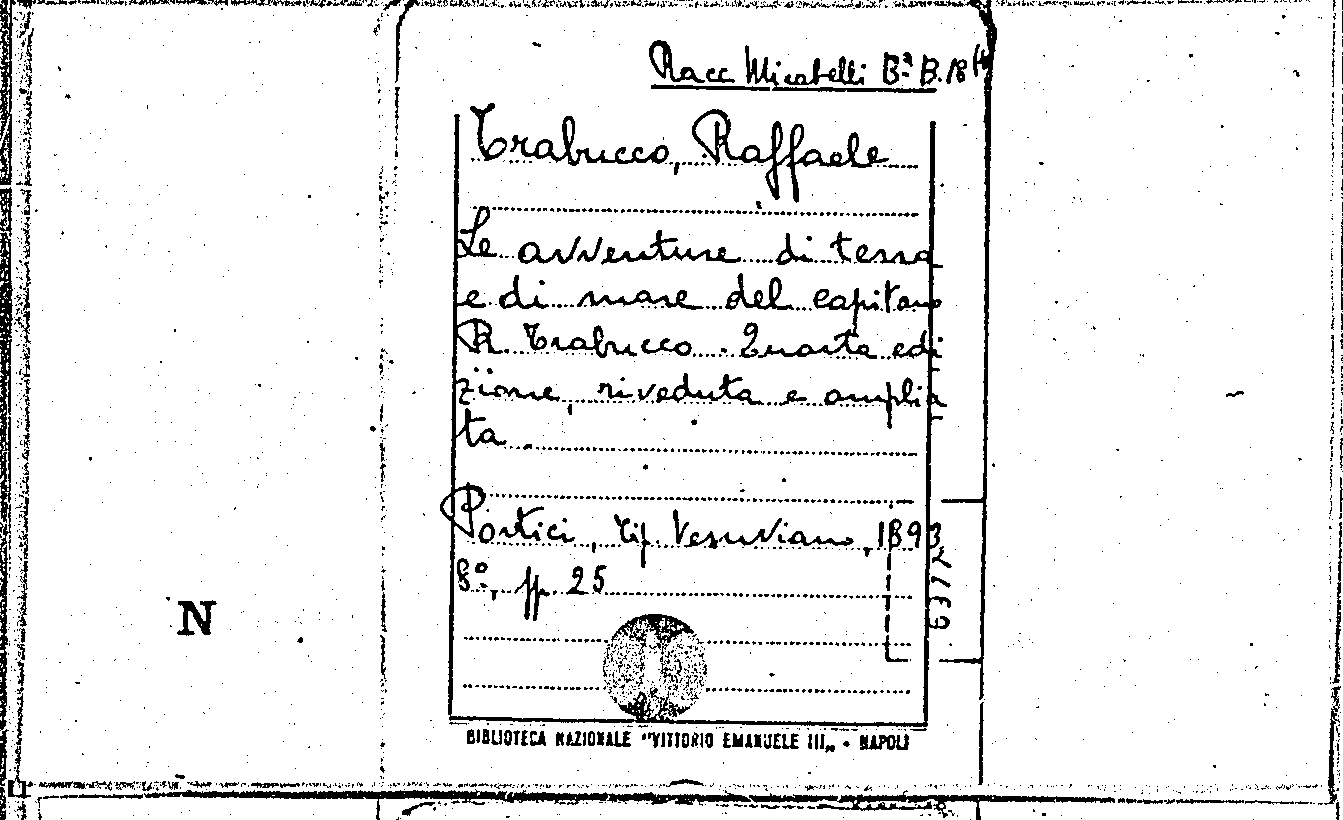 Racc Mirabelli Bª B. 18 (4
Trabucco, Raffaele
Le avventure di terra
e di mare del capitano
R. Trabucco. Quarta edi
zione, riveduta e amplia
ta.
Portici, tip. Vesuviano, 1893
8º, pp. 25
N
BIBLIOTECA NAZIONALE "VITTORIO EMANUELE III„ - NAPOLI